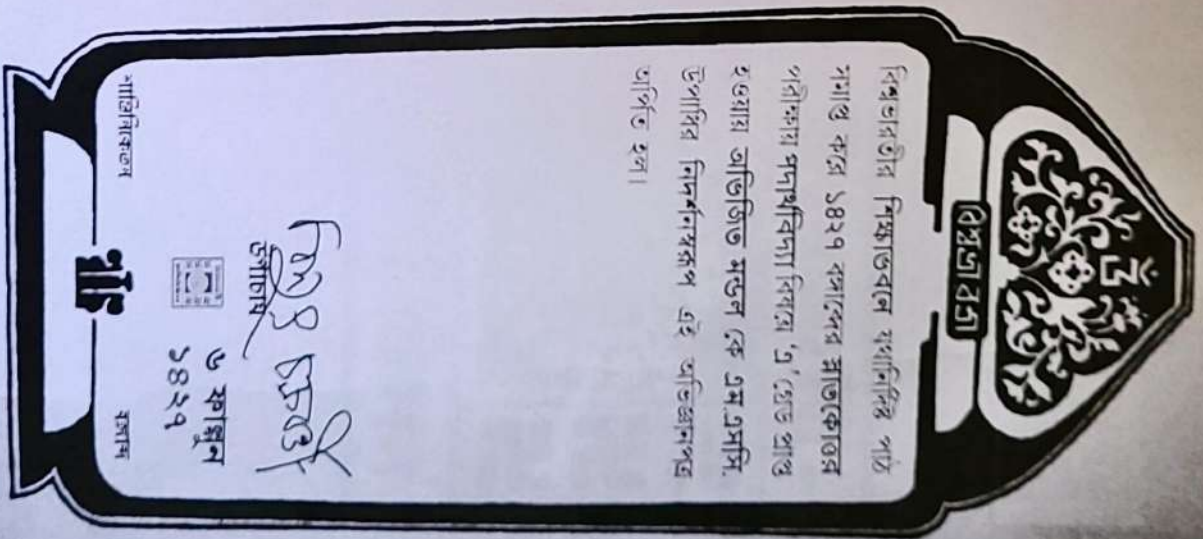 বিশ্বভারতী
বিশ্বভারতীর শিক্ষাভবনে যথানির্দিষ্ট পাঠ
সমাপ্ত করে ১৪২৭ বঙ্গাব্দের স্নাতকোত্তর
পরিক্ষায় পদার্থবিদ্যা বিষয়ে 'এ' গ্রেড প্রাপ্ত
হওয়ায় অভিজিত মন্ডল কে এম.এসসি.
উপাধির নিদর্শনস্বরূপ এই অভিজ্ঞানপত্র
অর্পিত হল।
উপাচার্য
৬ ফাল্গুন
১৪২৭
শান্তিনিকেতন
বঙ্গাব্দ